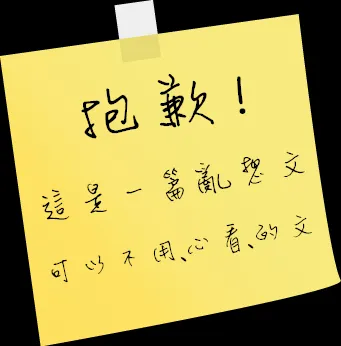 抱歉！
這是一篇亂想文
可以不用心看的文